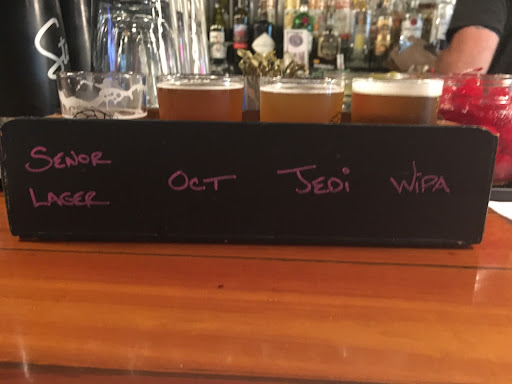 SENOR
LAGER
OCT
JEDi
WiPA